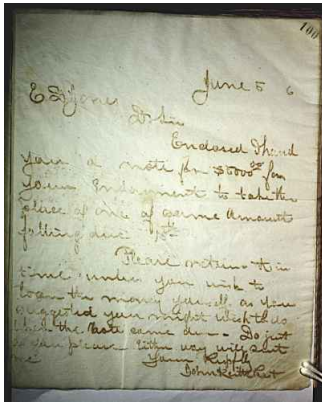 100
June 5 6
E D Jones
D Sir
Enclosed I hand
you a note for $5000 00 for
your Endorsement to take the
place of one of same Amount
falling due
Please return it in
time unless you wish to
loan the money yourself as you
suggested you might wish to do
the note came due. Do just
as you please either way will suit
me Yours Respfly
John Keith